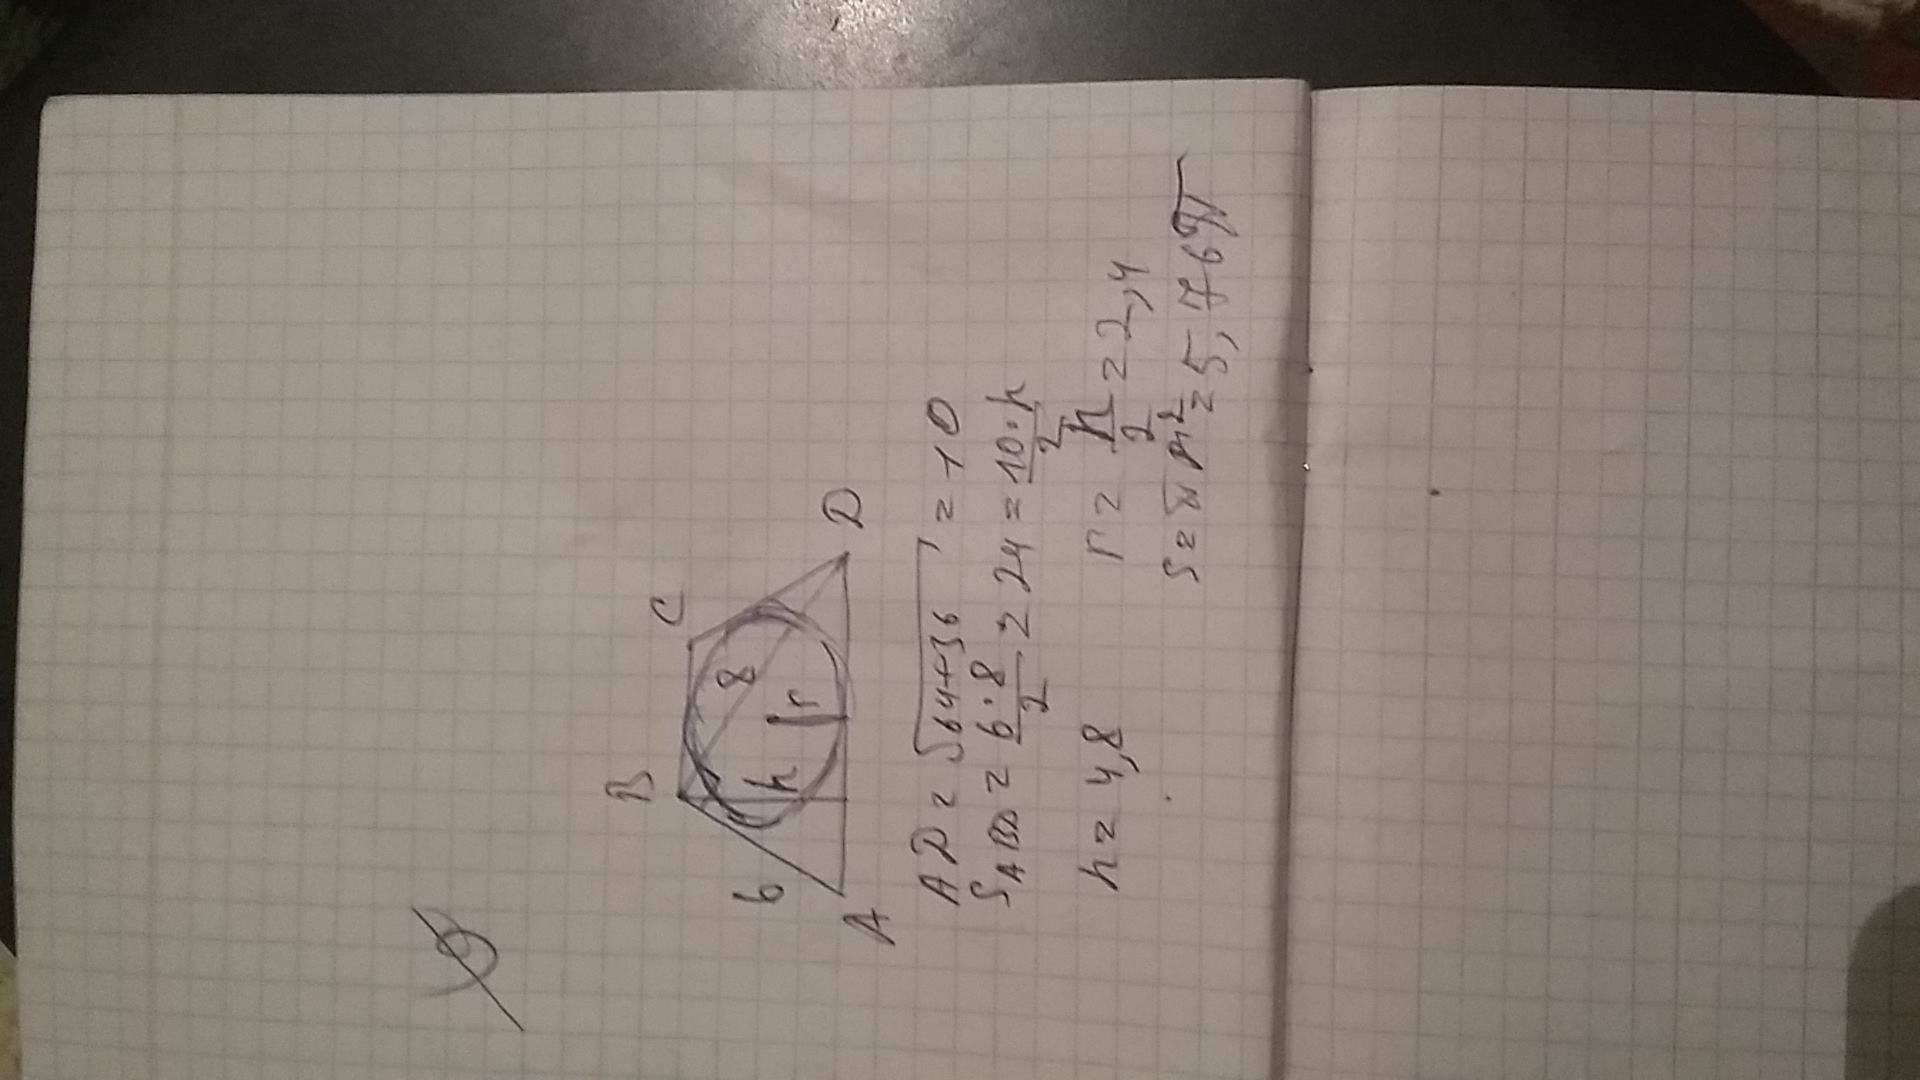 B C
6 h 8 r
A D
AD = √64+36 = 10
S ABD = 6·8/2 = 24 = 10·h/2
h = 4,8 r = h/2 = 2,4
S = πr² = 5,76π